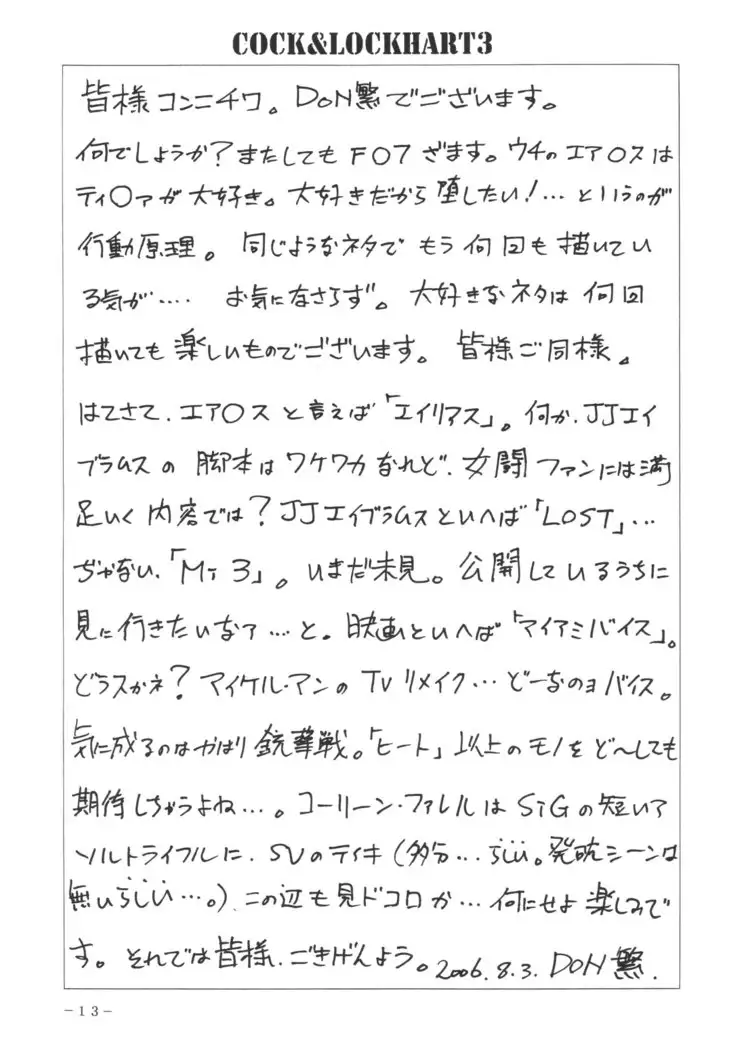 COCK&LOCKHART3
皆様コンニチワ。DoN繁でございます。
何でしょうか?またしてもFO7ざます。ウチのエア○スは
ティ○ァが大好き。大好きだから堕したい!…というのが
行動原理。同じようなネタでもう何回も描いてい
る気が…. お気になさらず。大好きなネタは何回
描いても楽しいものでございます。皆様ご同様。
はてさて、エア○スと言えば「エイリアス」。何か、JJエイ
ブラムスの脚本はワケワカなれど、女闘ファンには満
足いく内容では?JJエイブラムスといへば「LOST」…
ぢゃない、「Mi3」。いまだ未見。公開しているうちに
見に行きたいなァ…と。映画といへば「マイアミバイス」。
どうスかネ?マイケル・アンのTVリメイク…どーなのョバイス。
気に成るのはやはり銃撃戦。「ヒート」以上のモノをど〜しても
期待しちゃうよね…。コーリーン・ファレルはSiGの短いア
ソルトライフルに、SVのティキ(多分…らしい。発砲シーンは
無いらしい…。)、この辺も見ドコロか…何にせよ楽しみで
す。それでは皆様、ごきげんよう。2006.8.3. DoN繁.
-13-